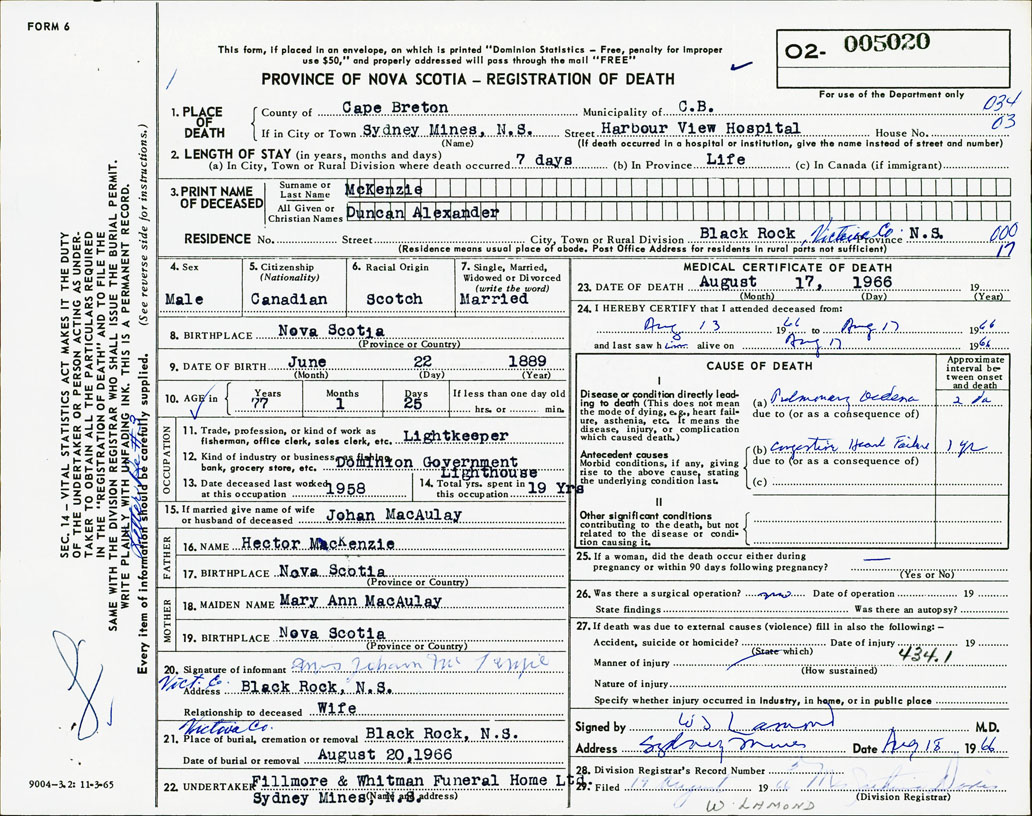 FORM 6
This form, if placed in an envelope, on which is printed "Dominion Statistics – Free, penalty for improper
use $50," and properly addressed will pass through the mail "FREE"
O2- 005020
For use of the Department only
PROVINCE OF NOVA SCOTIA – REGISTRATION OF DEATH
034
03
1. PLACE OF DEATH
County of Cape Breton Municipality of C.B.
If in City or Town Sydney Mines, N.S. Street Harbour View Hospital House No.
(Name) (If death occurred in a hospital or institution, give the name instead of street and number)
2. LENGTH OF STAY (in years, months and days)
(a) In City, Town or Rural Division where death occurred 7 days (b) In Province Life (c) In Canada (if immigrant)
3. PRINT NAME OF DECEASED
Surname or Last Name McKenzie
All Given or Christian Names Duncan Alexander
RESIDENCE No. Street City, Town or Rural Division Black Rock, Victoria Co. Province N.S.
(Residence means usual place of abode. Post Office Address for residents in rural parts not sufficient)
000
17
4. Sex
Male
5. Citizenship
(Nationality)
Canadian
6. Racial Origin
Scotch
7. Single, Married,
Widowed or Divorced
(write the word)
Married
8. BIRTHPLACE Nova Scotia
(Province or Country)
9. DATE OF BIRTH June 22 1889
(Month) (Day) (Year)
10. AGE in
Years Months Days If less than one day old
77 1 25 hrs. or min.
OCCUPATION
11. Trade, profession, or kind of work as
fisherman, office clerk, sales clerk, etc. Lightkeeper
12. Kind of industry or business, as fishing,
bank, grocery store, etc. Dominion Government
Lighthouse
13. Date deceased last worked
at this occupation 1958
14. Total yrs. spent in
this occupation 19 Yrs
15. If married give name of wife
or husband of deceased Johan MacAulay
FATHER
16. NAME Hector MacKenzie
17. BIRTHPLACE Nova Scotia
(Province or Country)
MOTHER
18. MAIDEN NAME Mary Ann MacAulay
19. BIRTHPLACE Nova Scotia
(Province or Country)
20. Signature of informant Mrs Johan Mc
Vict. Co.
Address Black Rock, N.S.
Relationship to deceased Wife
Victoria Co.
21. Place of burial, cremation or removal Black Rock, N.S.
Date of burial or removal August 20,1966
22. UNDERTAKER Fillmore & Whitman Funeral Home Ltd.
Sydney Mines, N.S.
(Name and address)
MEDICAL CERTIFICATE OF DEATH
23. DATE OF DEATH August 17, 1966 19
(Month) (Day) (Year)
24. I HEREBY CERTIFY that I attended deceased from:
Aug 13 1966 to Aug 17 1966
and last saw him alive on Aug 17 1966
CAUSE OF DEATH
Approximate interval between onset and death
I
Disease or condition directly leading to death (This does not mean the mode of dying, e.g., heart failure, asthenia, etc. It means the disease, injury, or complication which caused death.)
(a) Pulmonary Oedema 2 da
due to (or as a consequence of)
Antecedent causes
Morbid conditions, if any, giving rise to the above cause, stating the underlying condition last.
(b) Congestive Heart Failure 1 yr
due to (or as a consequence of)
(c)
II
Other significant conditions
contributing to the death, but not related to the disease or condition causing it.
25. If a woman, did the death occur either during
pregnancy or within 90 days following pregnancy? —
(Yes or No)
26. Was there a surgical operation? no Date of operation 19
State findings Was there an autopsy?
27. If death was due to external causes (violence) fill in also the following: –
Accident, suicide or homicide? Date of injury 19
(State which) 434.1
Manner of injury
(How sustained)
Nature of injury
Specify whether injury occurred in Industry, in home, or in public place
Signed by W S Lamond M.D.
Address Sydney Mines Date Aug 18 1966
28. Division Registrar's Record Number
29. Filed 19 August 1966
(Division Registrar)
W. LAMOND
SEC. 14 – VITAL STATISTICS ACT MAKES IT THE DUTY
OF THE UNDERTAKER OR PERSON ACTING AS UNDER-
TAKER TO OBTAIN ALL THE PARTICULARS REQUIRED
IN THE "REGISTRATION OF DEATH" AND TO FILE THE
SAME WITH THE DIVISION REGISTRAR WHO SHALL ISSUE THE BURIAL PERMIT.
WRITE PLAINLY WITH UNFADING INK. THIS IS A PERMANENT RECORD.
Every item of information should be carefully supplied. (See reverse side for instructions.)
9004-3.2: 11-3-65